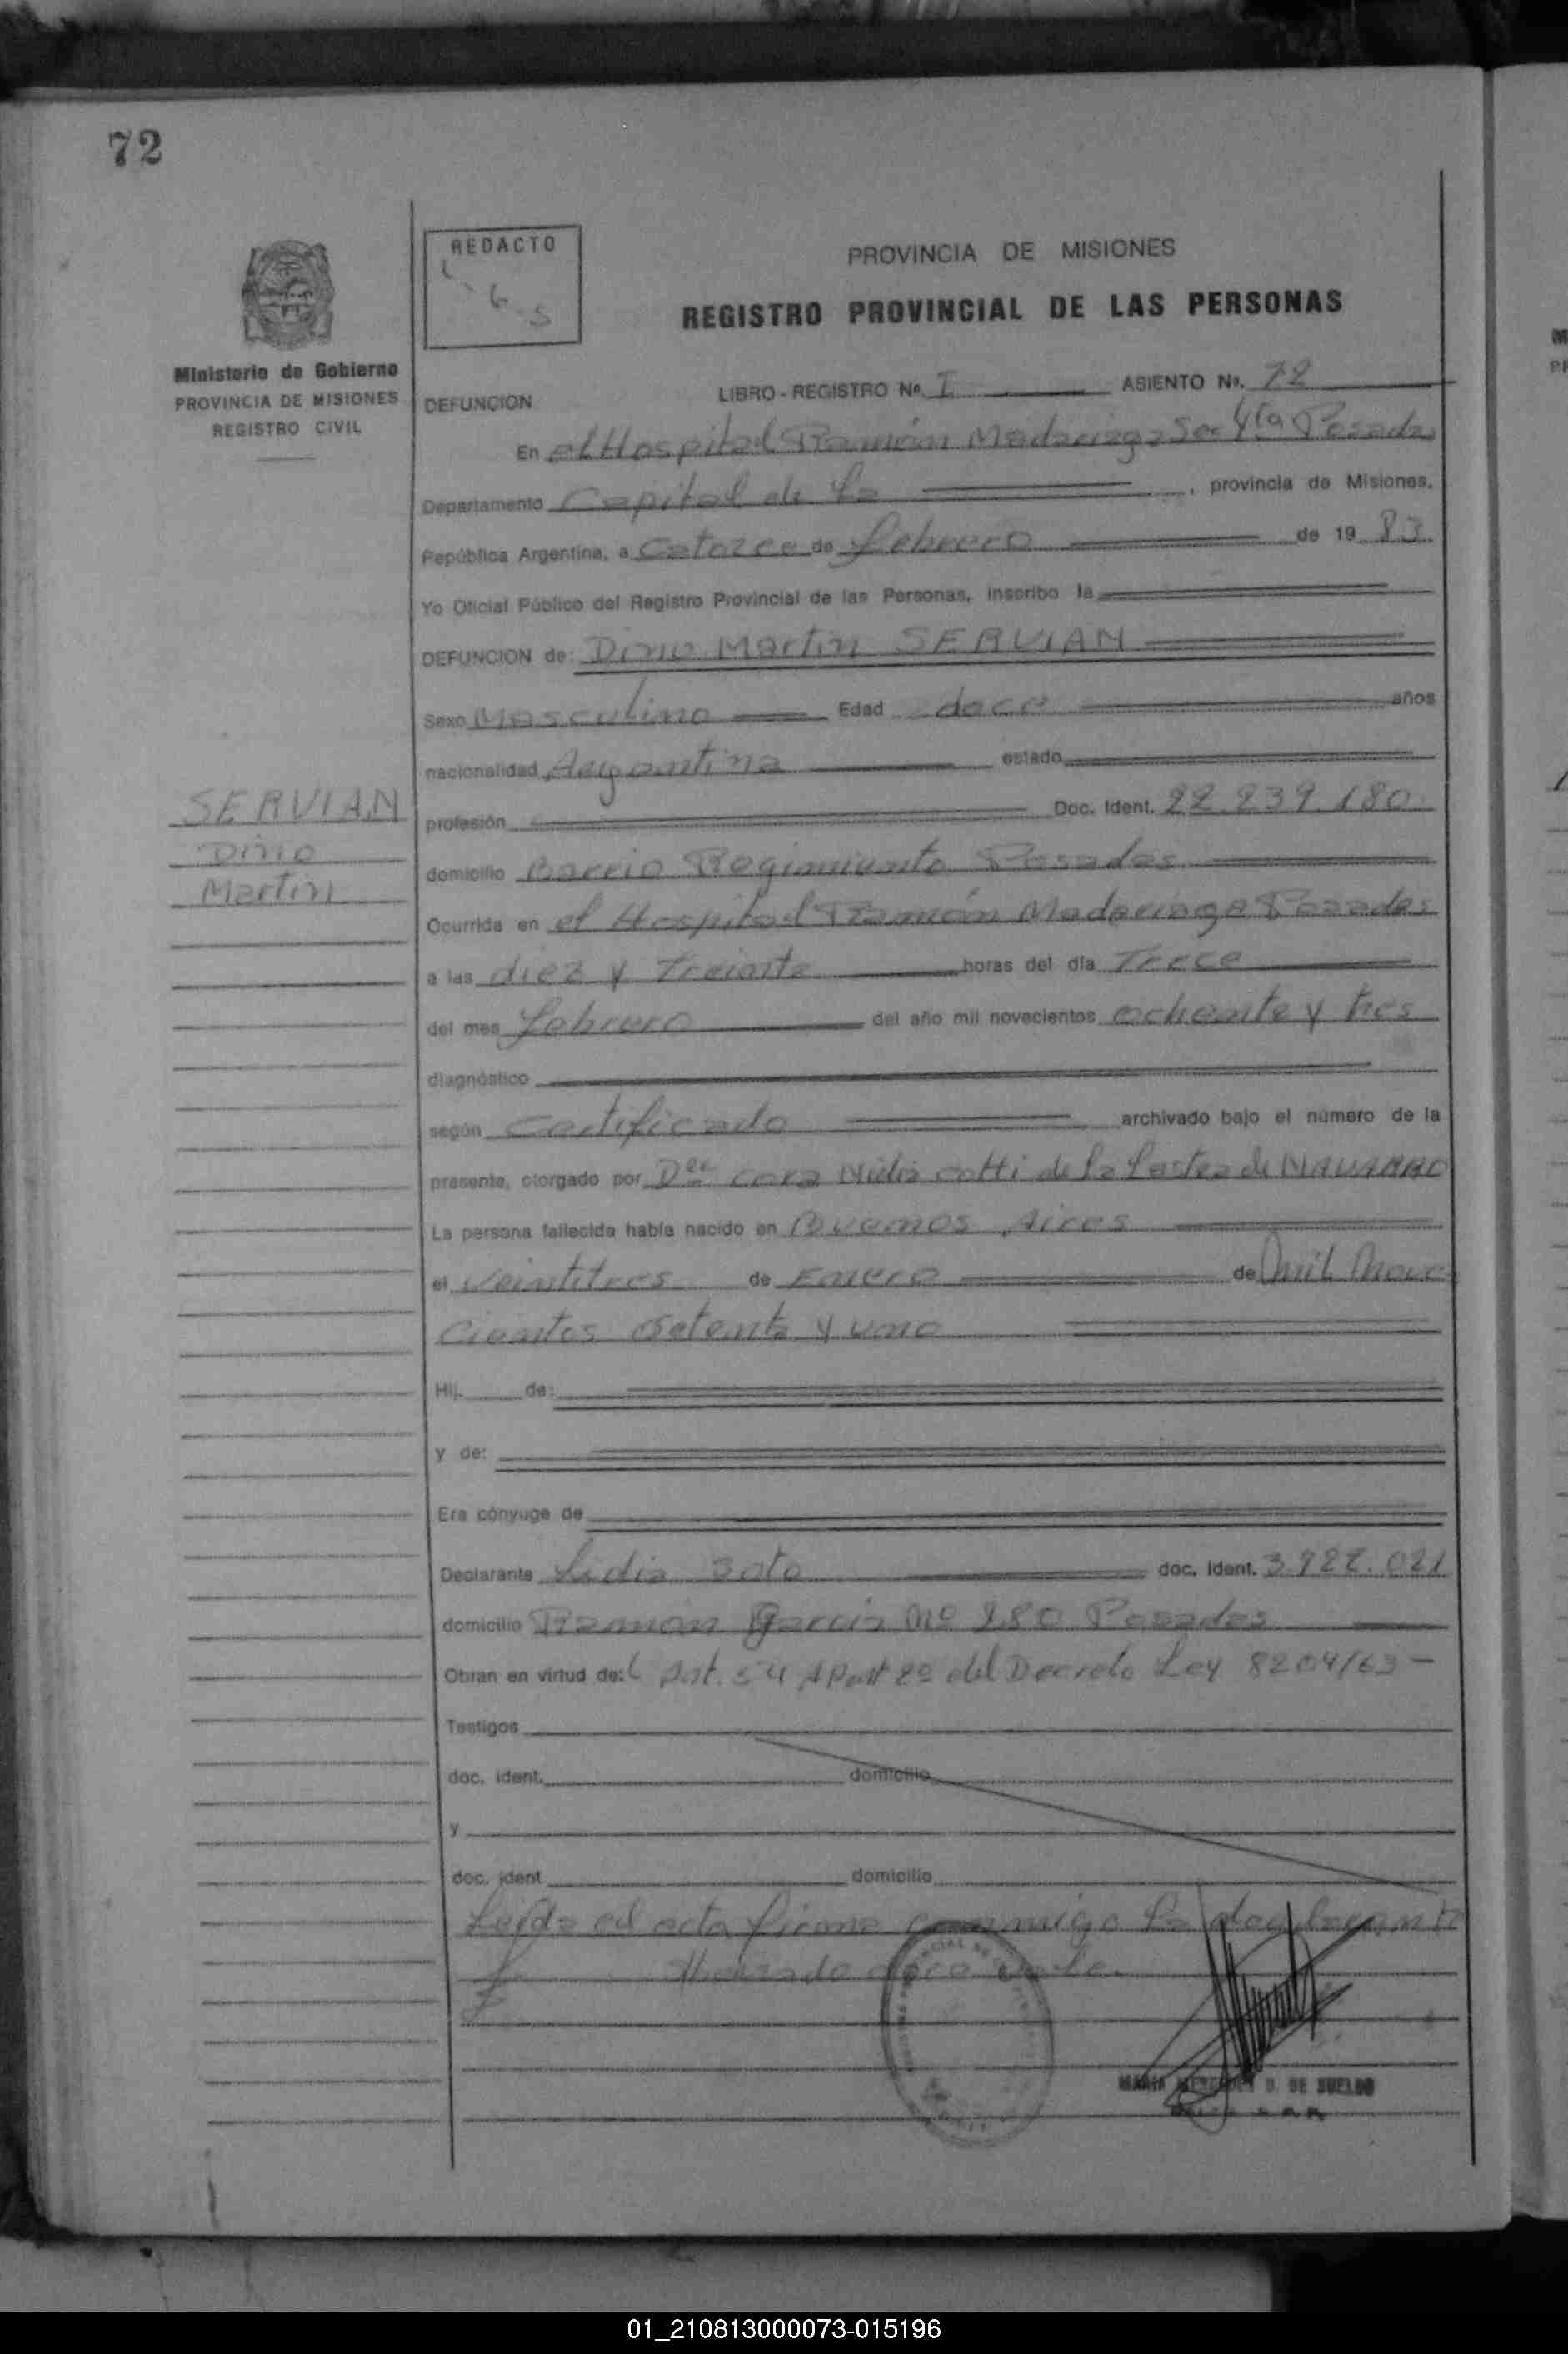 72
REDACTO
6
5
PROVINCIA DE MISIONES
REGISTRO PROVINCIAL DE LAS PERSONAS
Ministerio de Gobierno
PROVINCIA DE MISIONES
REGISTRO CIVIL
LIBRO - REGISTRO Nº. I ASIENTO Nº. 72
DEFUNCION
En el Hospital Ramón Madariaga Sec 4ta Posadas
Departamento Capital de la , provincia de Misiones,
República Argentina, a Catorce de febrero de 19 83
Yo Oficial Público del Registro Provincial de las Personas, inscribo la
DEFUNCION de: Dino Martin SERVIAN
Sexo Masculino Edad doce años
nacionalidad Argentina estado
SERVIAN
Dino
Martin
profesión Doc. Ident. 22.239.180
domicilio Barrio Regimiento Posadas
Ocurrida en el Hospital Ramón Madariaga Posadas
a las diez y Treinta horas del día Trece
del mes febrero del año mil novecientos ochenta y tres
diagnóstico
según certificado archivado bajo el número de la
presente, otorgado por Dra Cora Nidia Cotti de la Lastra de NAVARRO
La persona fallecida había nacido en Buenos Aires
el Veintitres de Enero de Mil Nove
Cientos Setenta y uno
Hij de:
y de:
Era cónyuge de
Declarante Lidia Soto doc. ident. 3.922.021
domicilio Ramón García Nº 280 Posadas
Obran en virtud de: l Art. 54 Apart 2º del Decreto Ley 8204/63 -
Testigos
doc. ident. domicilio
y
doc. ident domicilio
Leída el acta firma conmigo la declarante
vale.
MARIA MERCEDES D. DE SUELDO
01_210813000073-015196